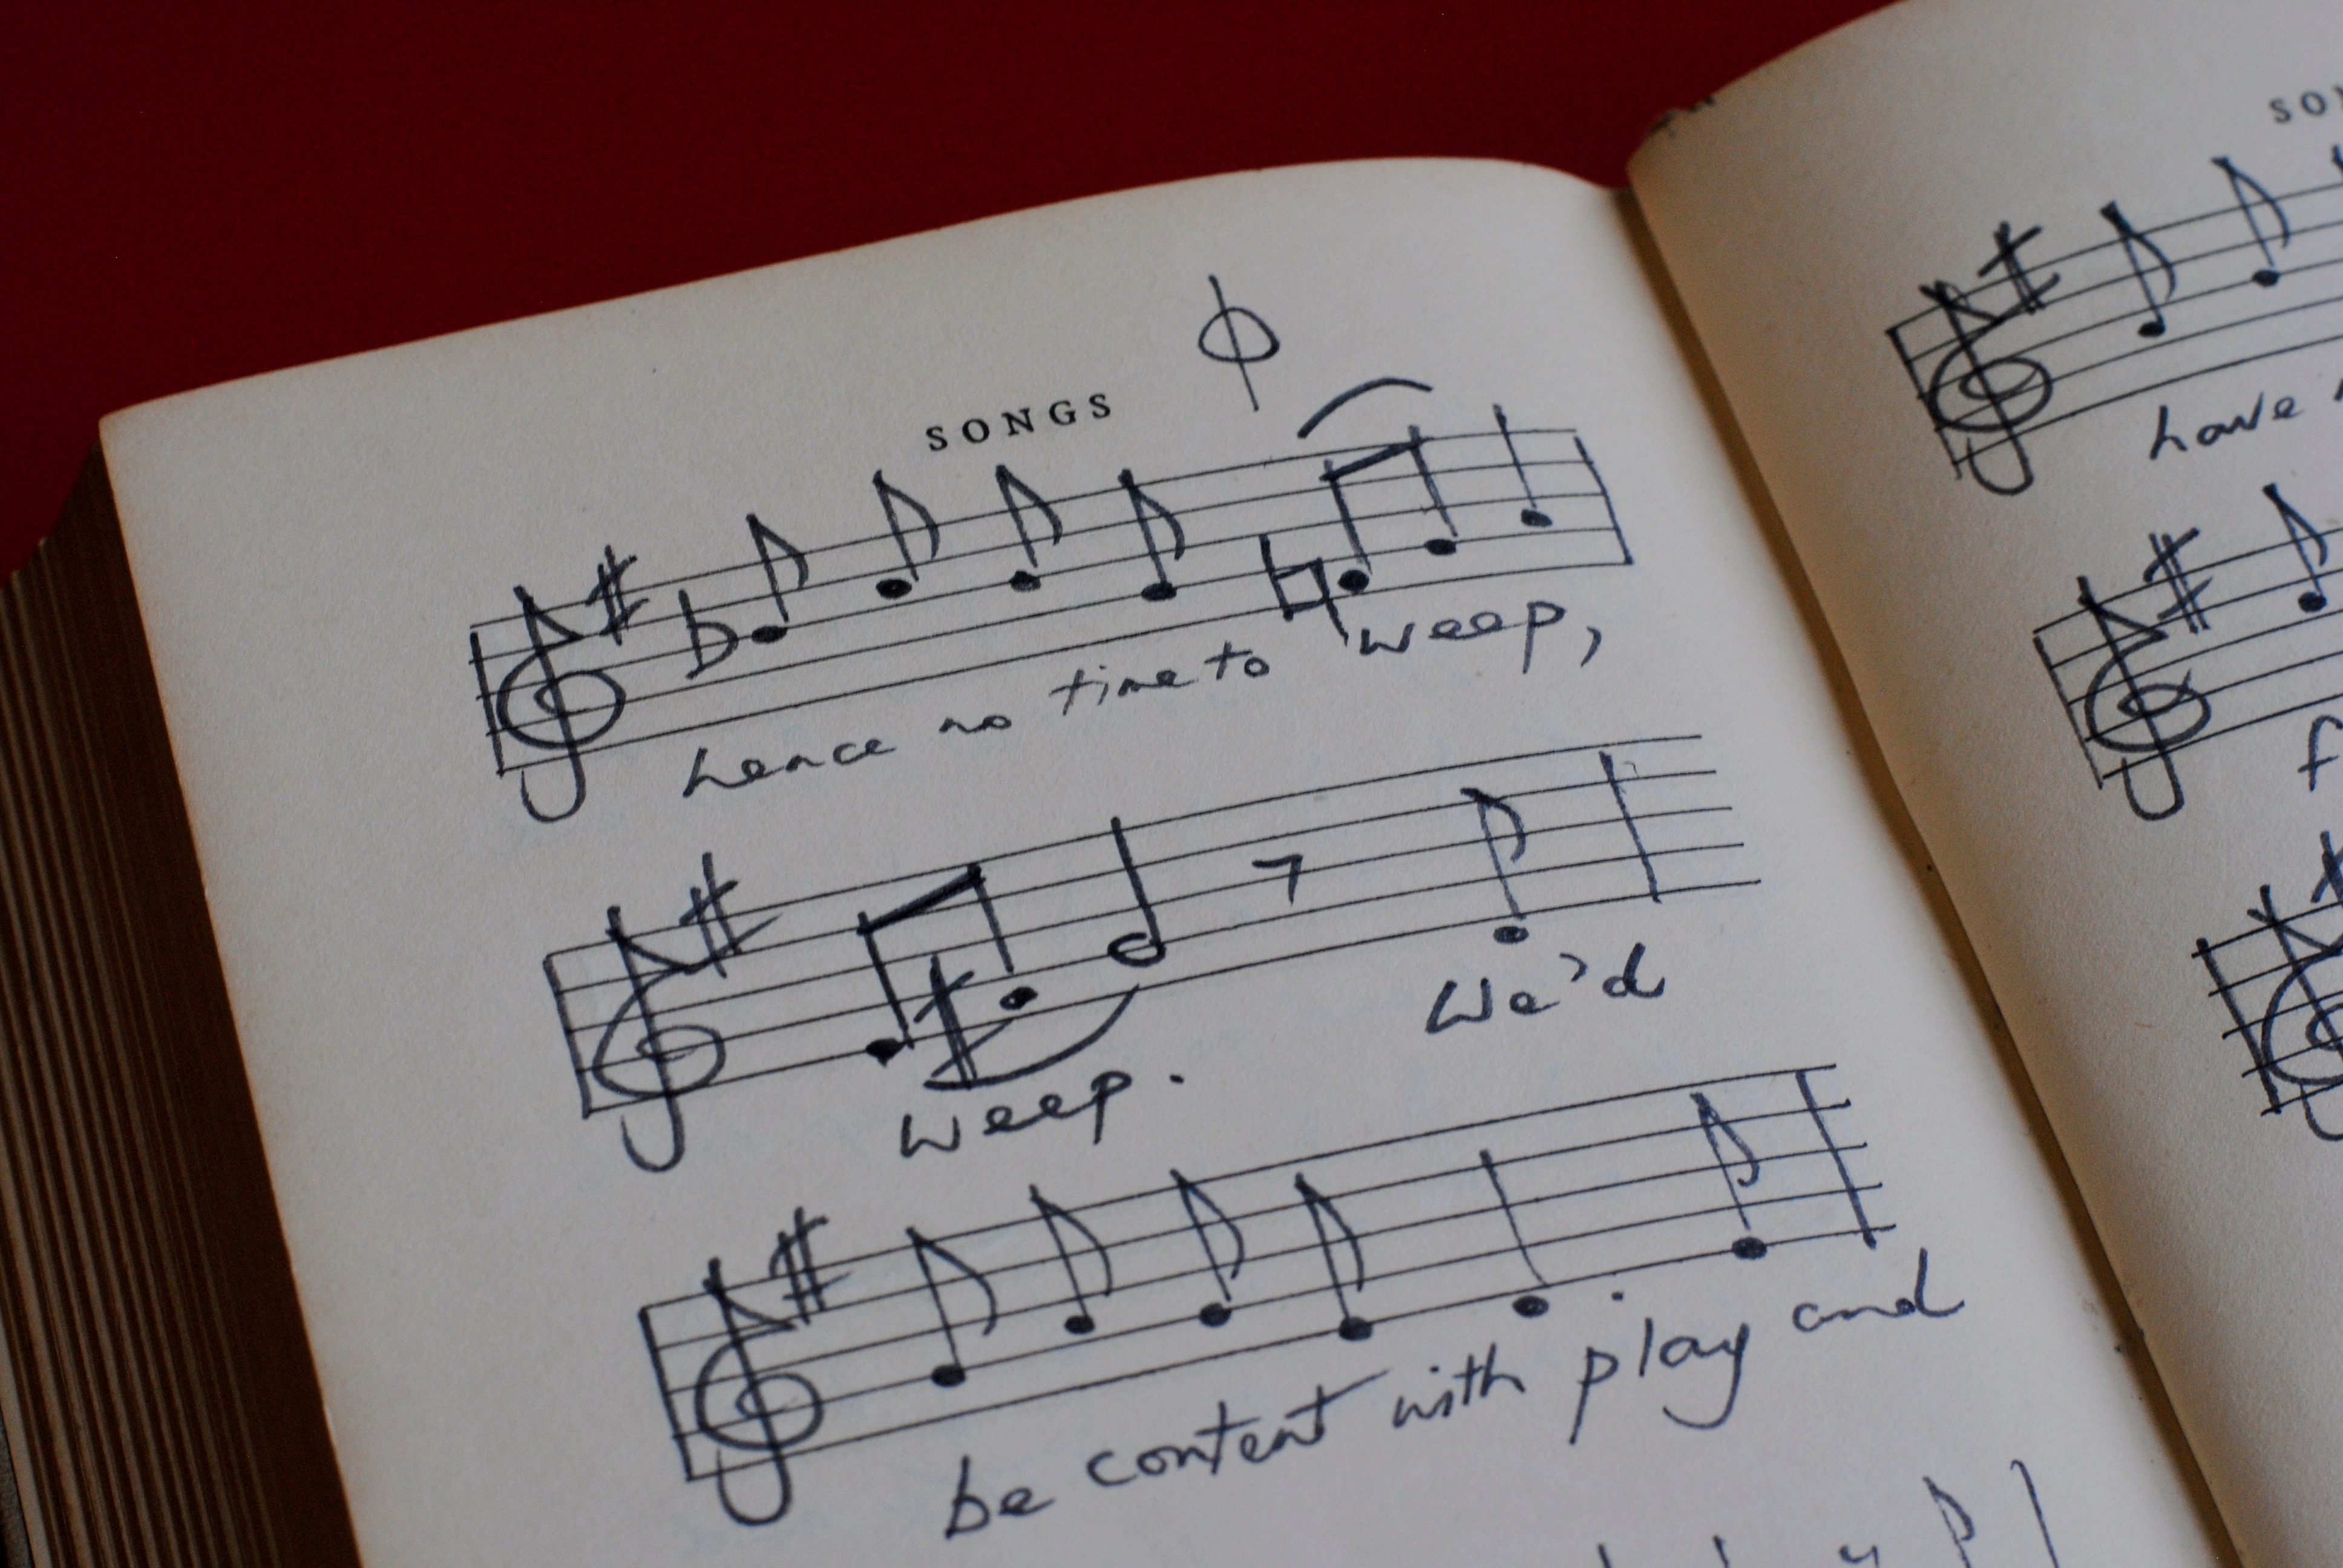 SONGS
hence no time to weep,
weep. We'd
be content with play and
have